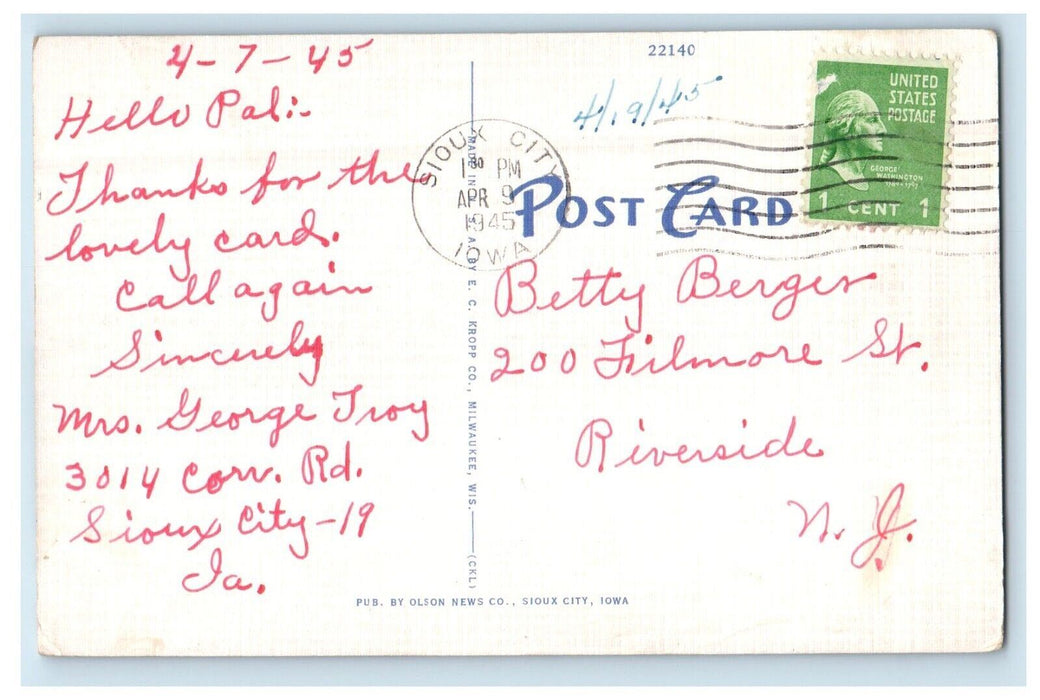 4-7-45
Hello Pal:-
Thanks for the
lovely card.
Call again
Sincerely
Mrs. George Troy
3014 Corr. Rd.
Sioux City-19
Ia.
22140
4/19/45
SIOUX CITY
1 30 PM
APR 9
1945
IOWA
POST CARD
UNITED
STATES
POSTAGE
GEORGE
WASHINGTON
1789-1797
1 CENT 1
Betty Berger
200 Filmore St.
Riverside
N. J.
MADE IN U.S.A. BY E. C. KROPP CO., MILWAUKEE, WIS. (CKL)
PUB. BY OLSON NEWS CO., SIOUX CITY, IOWA